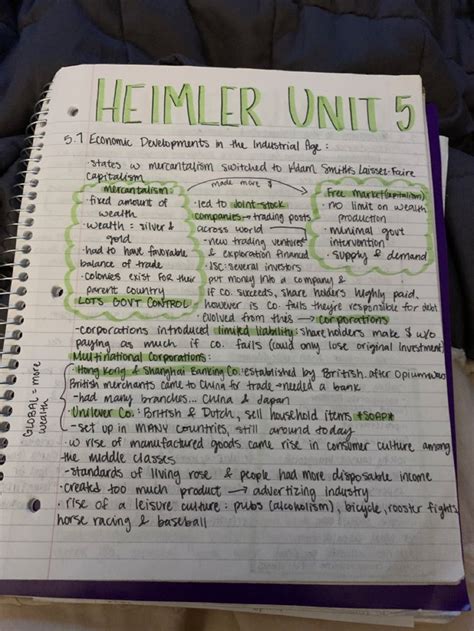 HEIMLER UNIT 5
5.7 Economic Developments in the Industrial Age:
·states w mercantalism switched to Adam Smiths Laissez-Faire
capitalism
made more $
mercantalism:
·fixed amount of
wealth
·wealth = silver &
gold
·had to have favorable
balance of trade
·colonies exist for their
parent country
LOTS GOVT CONTROL
·led to joint-stock
companies → trading posts
across world
-new trading ventures
& exploration financed
·JSC: several investors
put money into a company &
if co. succeeds, share holders highly paid.
however is co. fails they're responsible for debt
·evolved from this → corporations
Free market (capitalism)
·no limit on wealth
production
·minimal govt
intervention
·supply & demand
-corporations introduced limited liability: shareholders make $ w/o
paying as much if co. fails (could only lose original investment)
Multinational Corporations:
·Hong Kong & Shanghai Banking Co: established by British after Opium Wars
British merchants came to China for trade → needed a bank
-had many branches... China & Japan
·Unilever Co: British & Dutch, sell household items *SOAP*
-set up in MANY countries, still around today
GLOBAL = more
wealth
·w rise of manufactured goods came rise in consumer culture among
the middle classes
-standards of living rose & people had more disposable income
-created too much product → advertizing industry
·rise of a leisure culture: pubs (alcoholism), bicycle, rooster fights,
horse racing & baseball